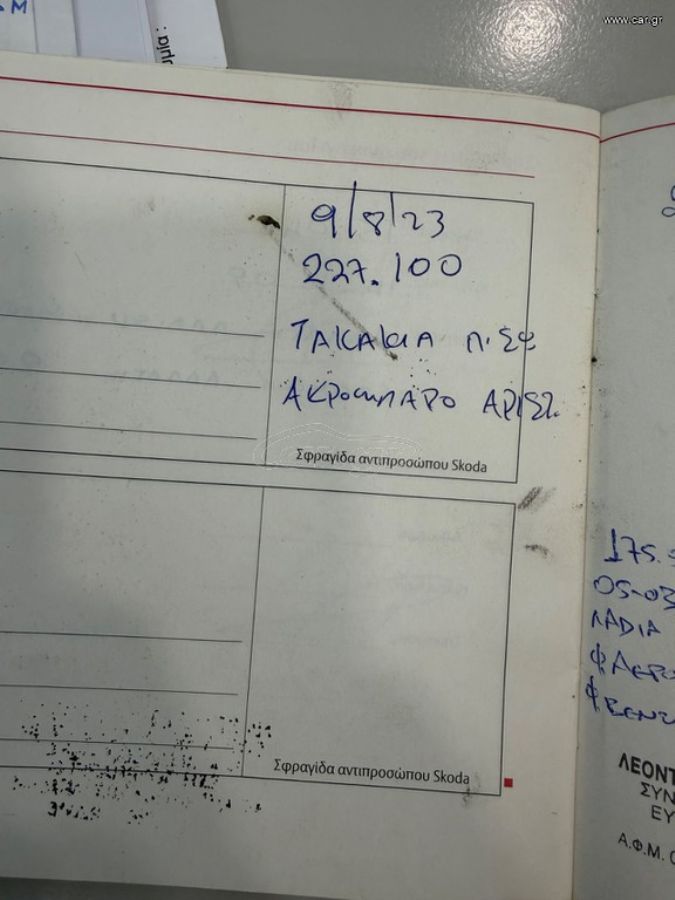 www.car.gr
μία :
9/8/23
227.100
ΤΑΚΑΚΙΑ ΠΙΣΩ
ΑΚΡΟΜΠΑΡΟ ΑΡΙΣΤ.
Σφραγίδα αντιπροσώπου Skoda
Σφραγίδα αντιπροσώπου Skoda
175.
05-03
ΛΑΔΙΑ
ΦΑΕΡΟ
ΦΒΕΝΖ
ΛΕΟΝΤ
ΣΥΝ
ΕΥ
Α.Φ.Μ. 0